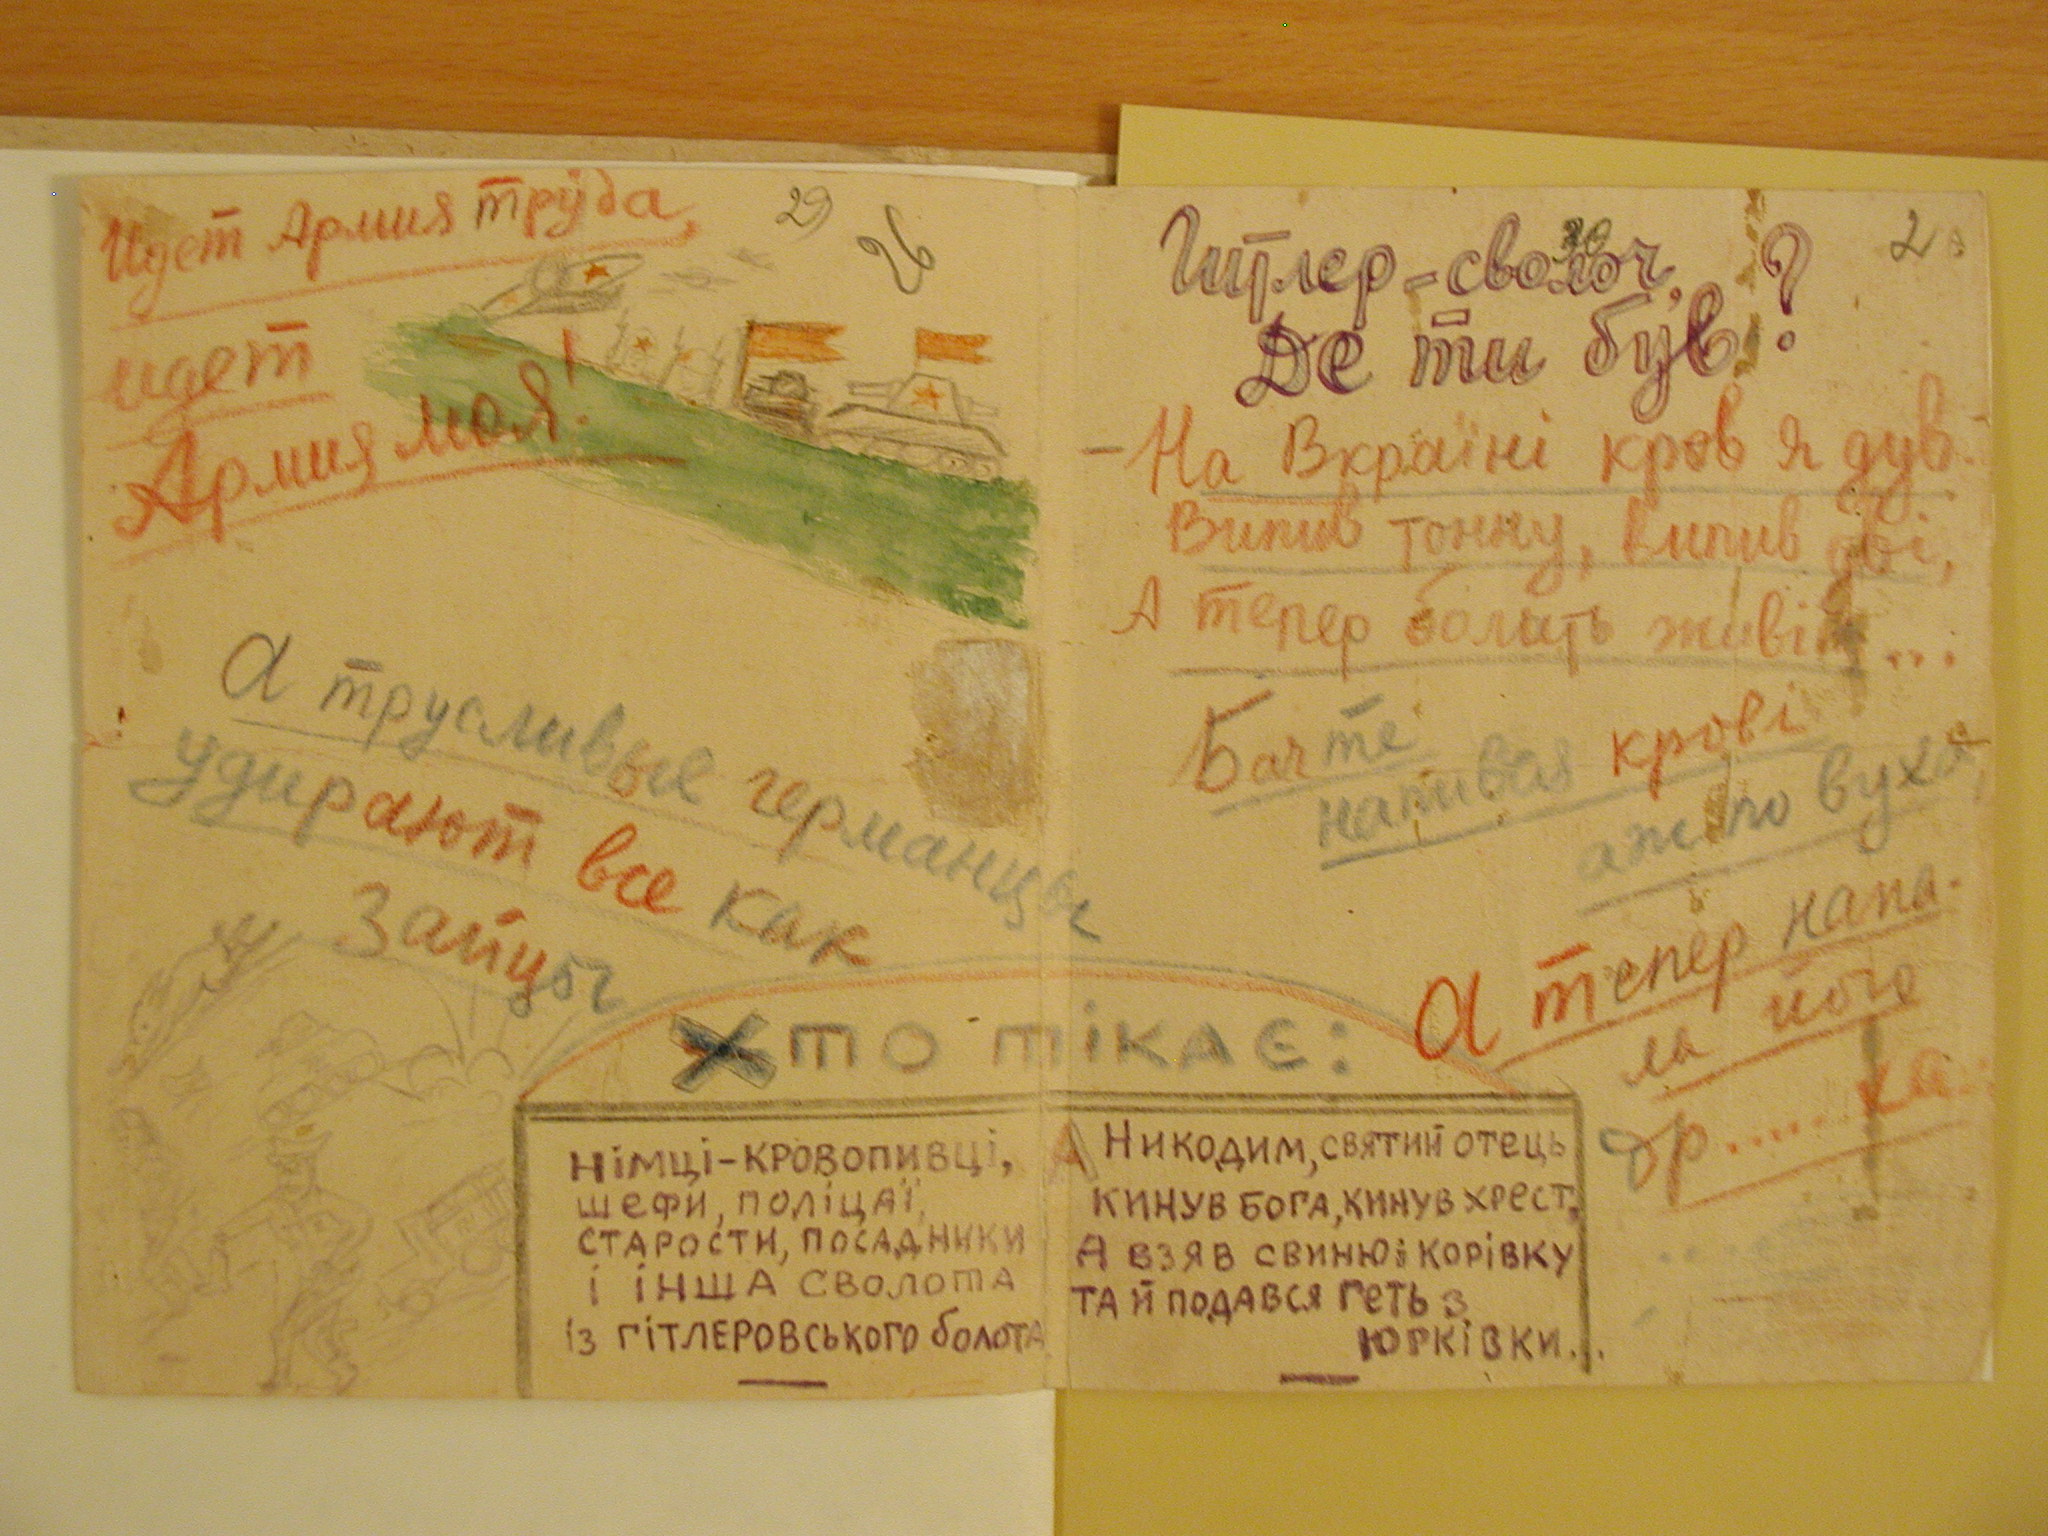 Идет Армия труда,
идет
Армия моя!
29
26
А трусливые германцы
удирают все как
Зайцы
30
2
Гітлер-сволоч,
Де ти був?
- На Вкраїні кров я дув.
Випив тонну, випив дві,
А тепер болить живіт...
Бачте
напився крові
аж по вуха,
А тепер напа-
ла його
др.....ха...
Хто тікає:
Німці-кровопивці,
шефи, поліцаї,
старости, посадники
і інша сволота
із гітлеровського болота
А Никодим, святий отець
кинув бога, кинув хрест,
А взяв свиню й корівку
та й подався геть з
Юрківки...